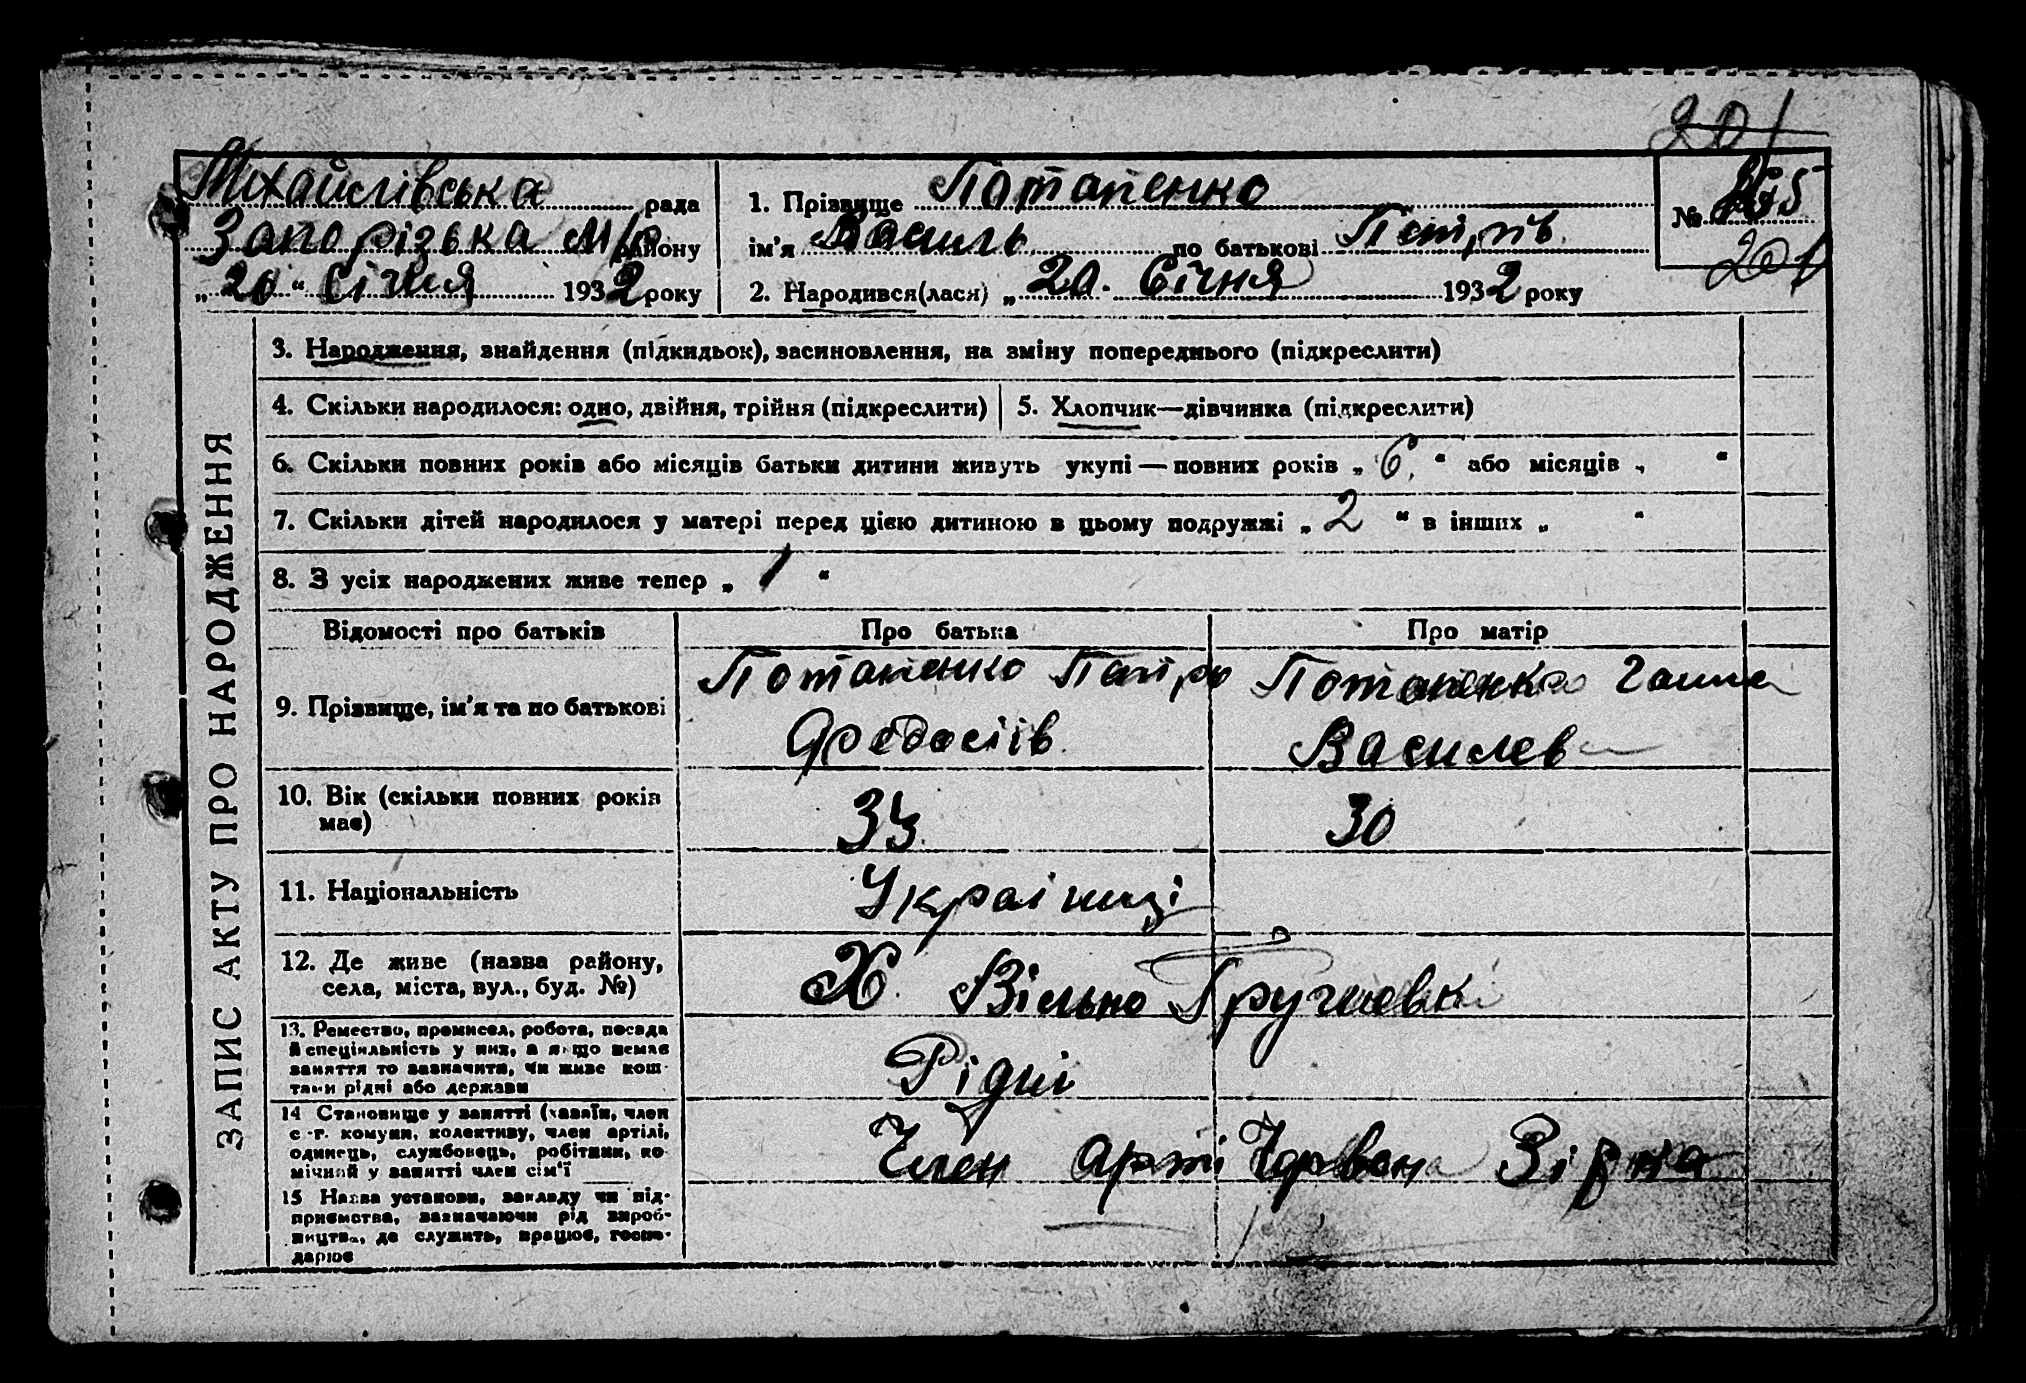 201
Михайлівська рада
Запорізька М/р району
„20“ Січня 1932 року
1. Прізвище Потапенко
ім'я Василь по батькові Петрів
2. Народився(лася) „20. Січня 1932 року
№ 5
201
ЗАПИС АКТУ ПРО НАРОДЖЕННЯ
3. Народження, знайдення (підкидьок), засиновлення, на зміну попереднього (підкреслити)
4. Скільки народилося: одно, двійня, трійня (підкреслити)
5. Хлопчик—дівчинка (підкреслити)
6. Скільки повних років або місяців батьки дитини живуть укупі — повних років „ 6. “ або місяців „ “
7. Скільки дітей народилося у матері перед цією дитиною в цьому подружжі „ 2 “ в інших „ “
8. З усіх народжених живе тепер „ 1 “
Відомості про батьків Про батька Про матір
9. Прізвище, ім'я та по батькові
Потапенко Петро
Федосіів
Потапенка Ганна
Василев
10. Вік (скільки повних років
має)
33.
30
11. Національність
Украінці
12. Де живе (назва району,
села, міста, вул., буд. №)
Х. Вільно Грушевки
13. Ремество, промисел, робота, посада
й спеціяльність у них, а якщо немає
заняття то зазначити, чи живе кош-
тами рідні або держави
Рідні
14 Становище у занятті (хазяїн, член
с.-г. комуни, колективу, член артілі,
одинець, службовець, робітник, по-
мічний у занятті член сім'ї
Член Арті Червона Зірка
15 Назва установи, закладу чи під-
приємства, зазначаючи рід вироб-
ництва, де служить, працює, госпо-
дарює